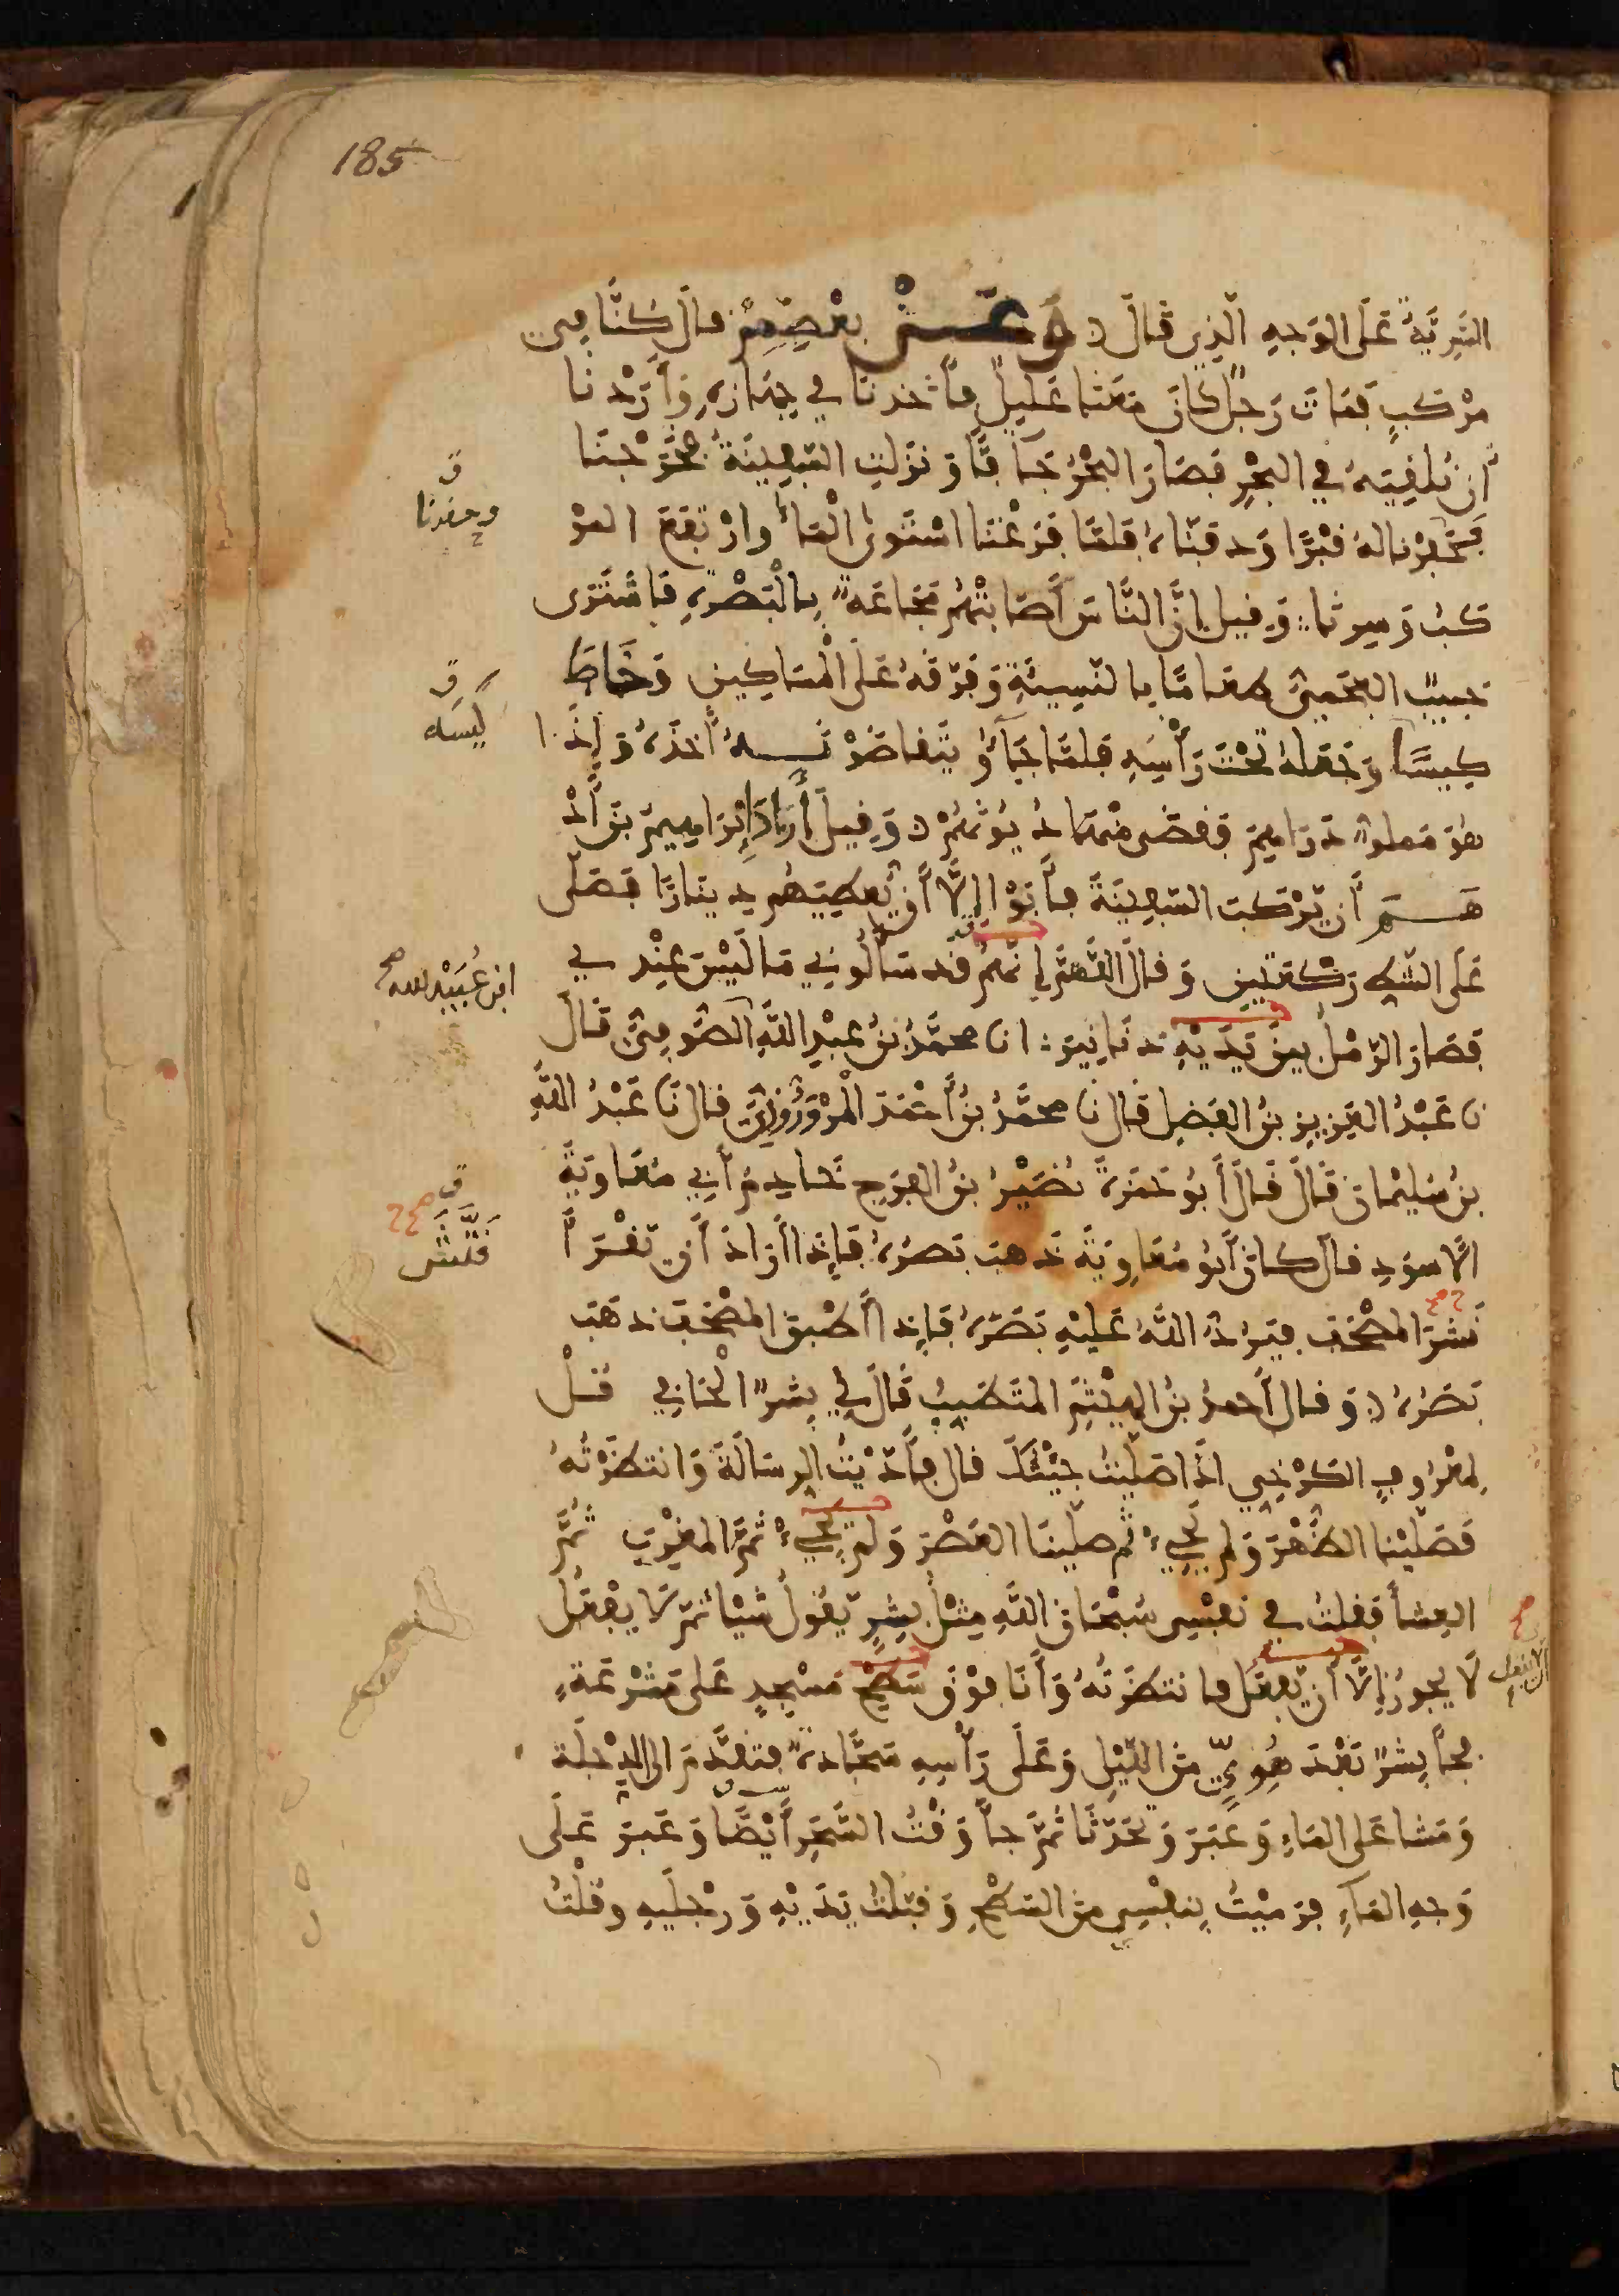 185
البَرِيَّةِ عَلَى الوَجهِ الَّذِى قَالَ وَعَنْ بعْضِهِمْ قال كُنَّا في
مرْكبٍ فمات رَجُلٌ كانَ مَعَنَا عَلِيلٌ فأخذنا في جهازه وَأرَدْنا
أن نُلقِيَهُ في البحْرِ فصَارَ البحْرُ جَافًّا وَنزلتِ السَّفينَةُ فخَرَجْنَا
فحَفرْنا لهُ قبْرًا وَدفنّاهُ فلمَّا فرَغْنَا اسْتَوى الْمَاءُ وارْتفعَ المرْ
كبُ وَسِرنا وَقيل إنَّ النَّاسَ أصَابتْهُمْ مجَاعَةٌ بالْبَصْرةِ فاشْتَرى
حبيبٌ العجَمِيُّ طعامًا بالنسيئةِ وَفرّقهُ عَلَى الْمَسَاكِينِ وَخاطَ
كيسًا وَجَعَلهُ تحْتَ رَأسِهِ فلمَّا جَاؤا يتَقاضوْنَهُ أخذَهُ وَإذا
هوَ مَملوٌّ دَرَاهِمَ فقضى منها ديُونَهُمْ وَقيلَ أرادَ إبْرَاهِيمُ بنُ أدْ
هَمَ أن يَرْكبَ السَّفِينَةَ فأبَوْا إلَّا أن يُعطِيَهُم دِينَارًا فصَلّى
عَلَى الشَّطِ رَكْعَتَينِ وَقال اللَّهُمَّ إنَّهُمْ قد سَألُونِي مَا لَيْسَ عِنْدِي
فصَارَ الرَّمْلُ بينَ يَدَيْهِ دَنانِيرَ انا محمَّدُ بنُ عبْدِ اللَّهِ الصُّوفِيُّ قَال
نا عَبْدُ العَزِيزِ بنُ الفضلِ قَال نا محمَّدُ بنُ أحْمَدَ الْمَرْوَرُّوذِيُّ قال نَا عَبْدُ اللَّهِ
بنُ سُلَيْمانَ قَالَ قَالَ أبُو حَمزةَ نُصَيْرُ بنُ الفرَجِ خادِمُ أبي مُعَاوِيَةَ
الأسوَدِ قال كانَ أبُو مُعَاوِيَةَ ذَهبَ بَصرُهُ فإذا أرَادَ أن يَقْرَأَ
نشَرَ المصْحَف فيَرُدُّ اللَّهُ عَلَيْهِ بَصَرَهُ فإذا أطْبقَ المصْحَفَ ذهَبَ
بَصَرُهُ وَقال أحمدُ بنُ الهَيْثمِ المتَطبِّبُ قَال لِي بِشرٌ الحافي قلْ
لمعْرُوفٍ الكَرْخِي اذَا صَلَّيْتُ جِئْتُكَ قال فأدّيْتُ الرسَالَةَ وَانتظرْتهُ
فَصَلَّيْنا الظُّهْرَ وَلم يجِيْ ثم صلّينَا العَصْرَ وَلم يجِيْ ثُمَّ المغْرِبَ ثُمَّ
العشاءَ فقلتُ في نفسِي سُبْحَانَ اللَّهِ مِثْلُ بِشرٍ يَقولُ شيْئا ثمّ لا يَفْعَلُ
لَا يجوزُ إلَّا أن يَفعَل فانتظرْتُهُ وَأنَا فوْقَ سَطحِ مَسْجِدٍ عَلَى مَشْرَعَةٍ
فجَاءَ بِشرٌ بَعْدَ هُوِيٍّ منَ اللّيْلِ وَعَلَى رَأسِهِ سَجَّادةٌ فتقدَّمَ الى الدِجْلَة
وَمَشا عَلى المَاءِ وَعَبَرَ وَتحَدَّثَا ثمَّ جاءَ وَقْتُ السَّحَرِ أيْضًا وَعَبرَ عَلَى
وَجهِ المَاءِ فرَمَيْتُ بِنفْسِي منَ السَّطْحِ وَقبَّلْتُ يَدَيْهِ وَرِجْلَيهِ وقلْتُ
وحفرنا
كيسه
ابن عُبَيْد الله صح
فَتَّش
الا ان يفعل